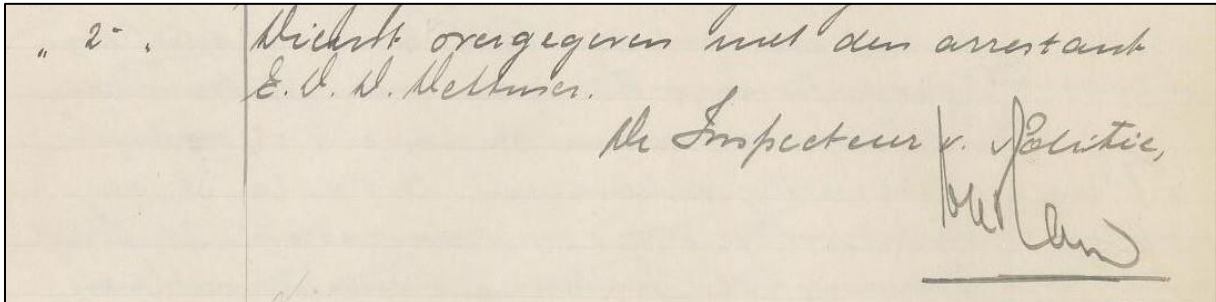 „ 2 - „ Dienst overgegeven met den arrestant
E. V. D. Dettmer.
De Inspecteur v. Politie,